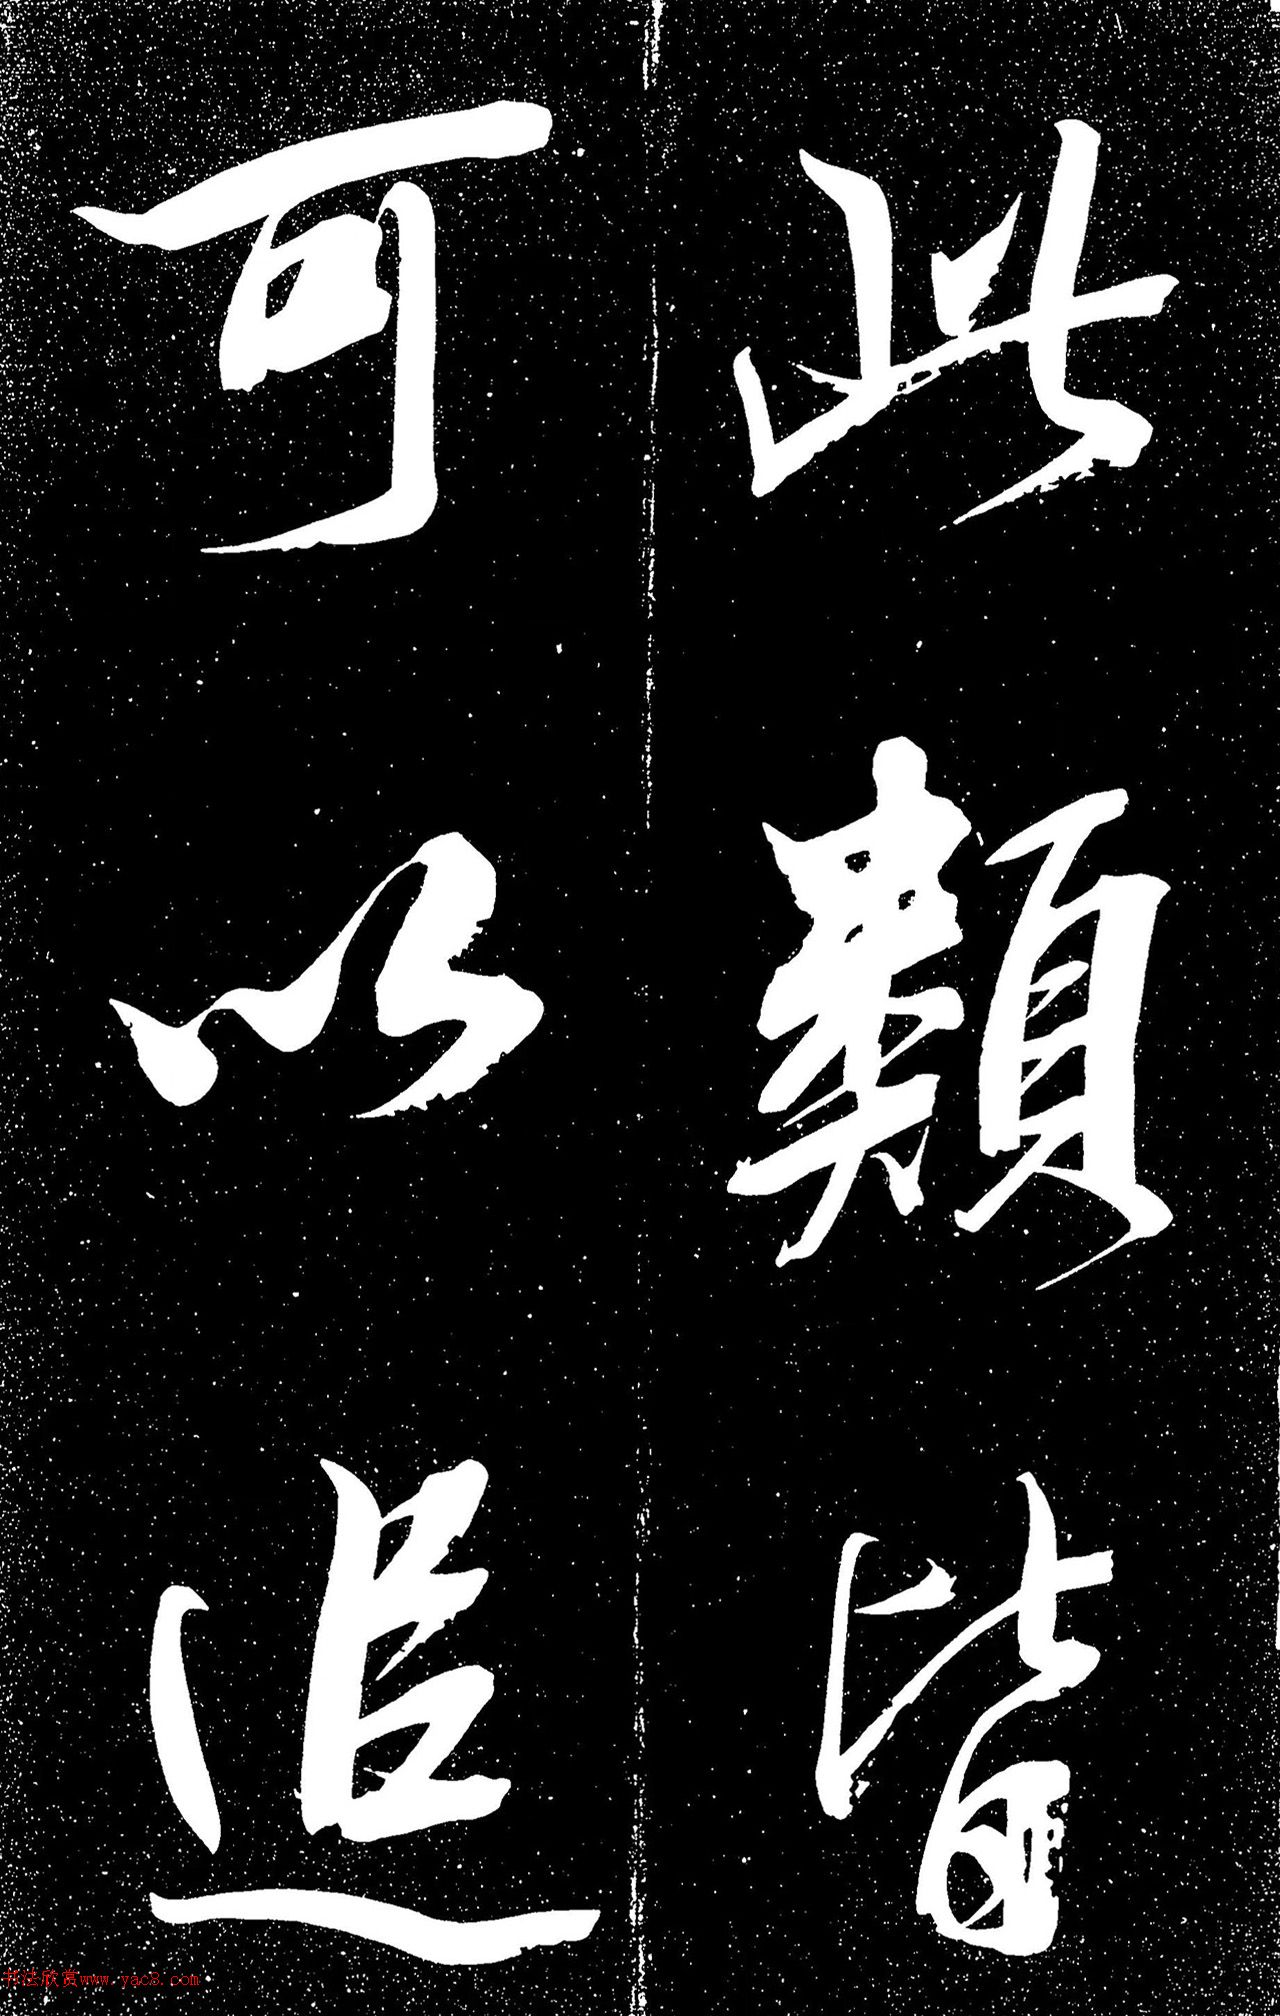 此類皆
可以追
书法欣赏www.yac8.com